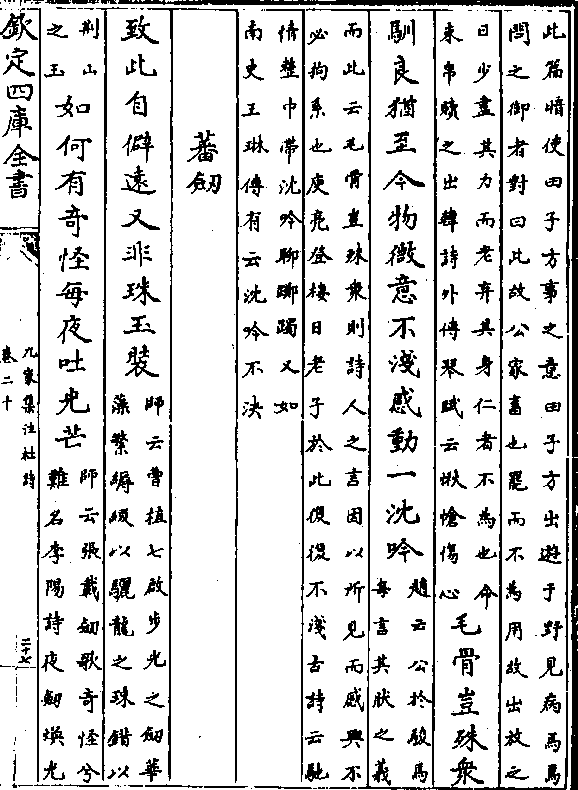 此篇暗使田子方事之意田子方出遊于野見病馬焉
問之御者對曰此故公家畜也罷而不為用故出放之
曰少盡其力而老棄其身仁者不為也命
束帛贖之出韓詩外傳琴賦云慘愴傷心
毛骨豈殊衆
馴良猶至今物微意不淺感動一沈吟
趙云公於駿馬
每言其狀之義
而此云毛骨豈殊衆則詩人之言因以所見而感興不
必拘系也庾亮登樓曰老子於此復復不淺古詩云馳
情整巾帶沈吟聊躑躅又如
南史王琳傳有云沈吟不決
蕃劒
致此自僻遠又非珠玉裝
師云曹植七啟步光之劒華
藻繁縟綴以驪龍之珠錯以
荆山
之玉
如何有奇怪每夜吐光芒
師云張載劒歌奇怪兮
難名李陽詩夜劒煥光
欽定四庫全書
九家集注杜詩
卷二十
二十七